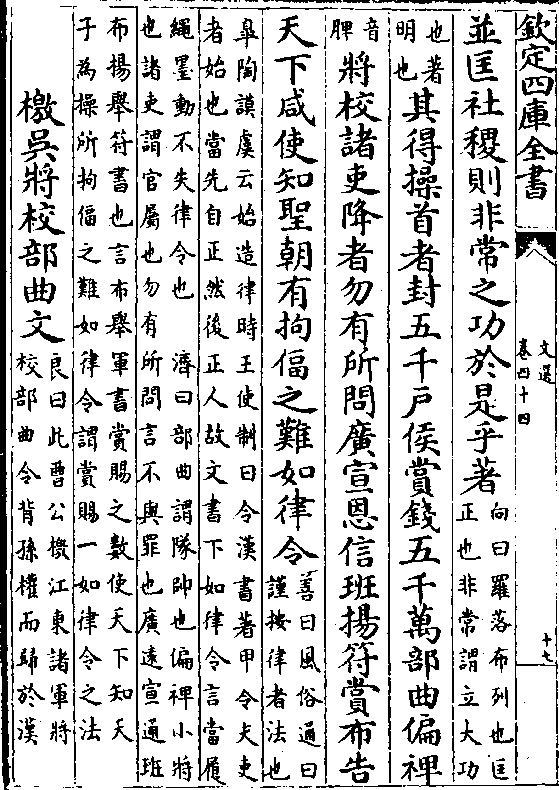 欽定四庫全書
文選
卷四十四
十七
並匡社稷則非常之功於是乎著
向曰羅落布列也匡
正也非常謂立大功
也著
明也
其得操首者封五千戶侯賞錢五千萬部曲偏裨
音
脾
將校諸吏降者勿有所問廣宣恩信班揚符賞布告
天下咸使知聖朝有拘偪之難如律令
善曰風俗通曰
謹按律者法也
臯陶謨虞云始造律時王使制曰令漢書著甲令夫吏
者始也當先自正然後正人故文書下如律令言當履
繩墨動不失律令也 濟曰部曲謂隊帥也偏裨小將
也諸吏謂官屬也勿有所問言不與罪也廣遠宣通班
布揚舉符書也言布舉軍書賞賜之數使天下知天
子為操所拘偪之難如律令謂賞賜一如律令之法
檄吳將校部曲文
良曰此曹公檄江東諸軍將
校部曲令背孫權而歸於漢